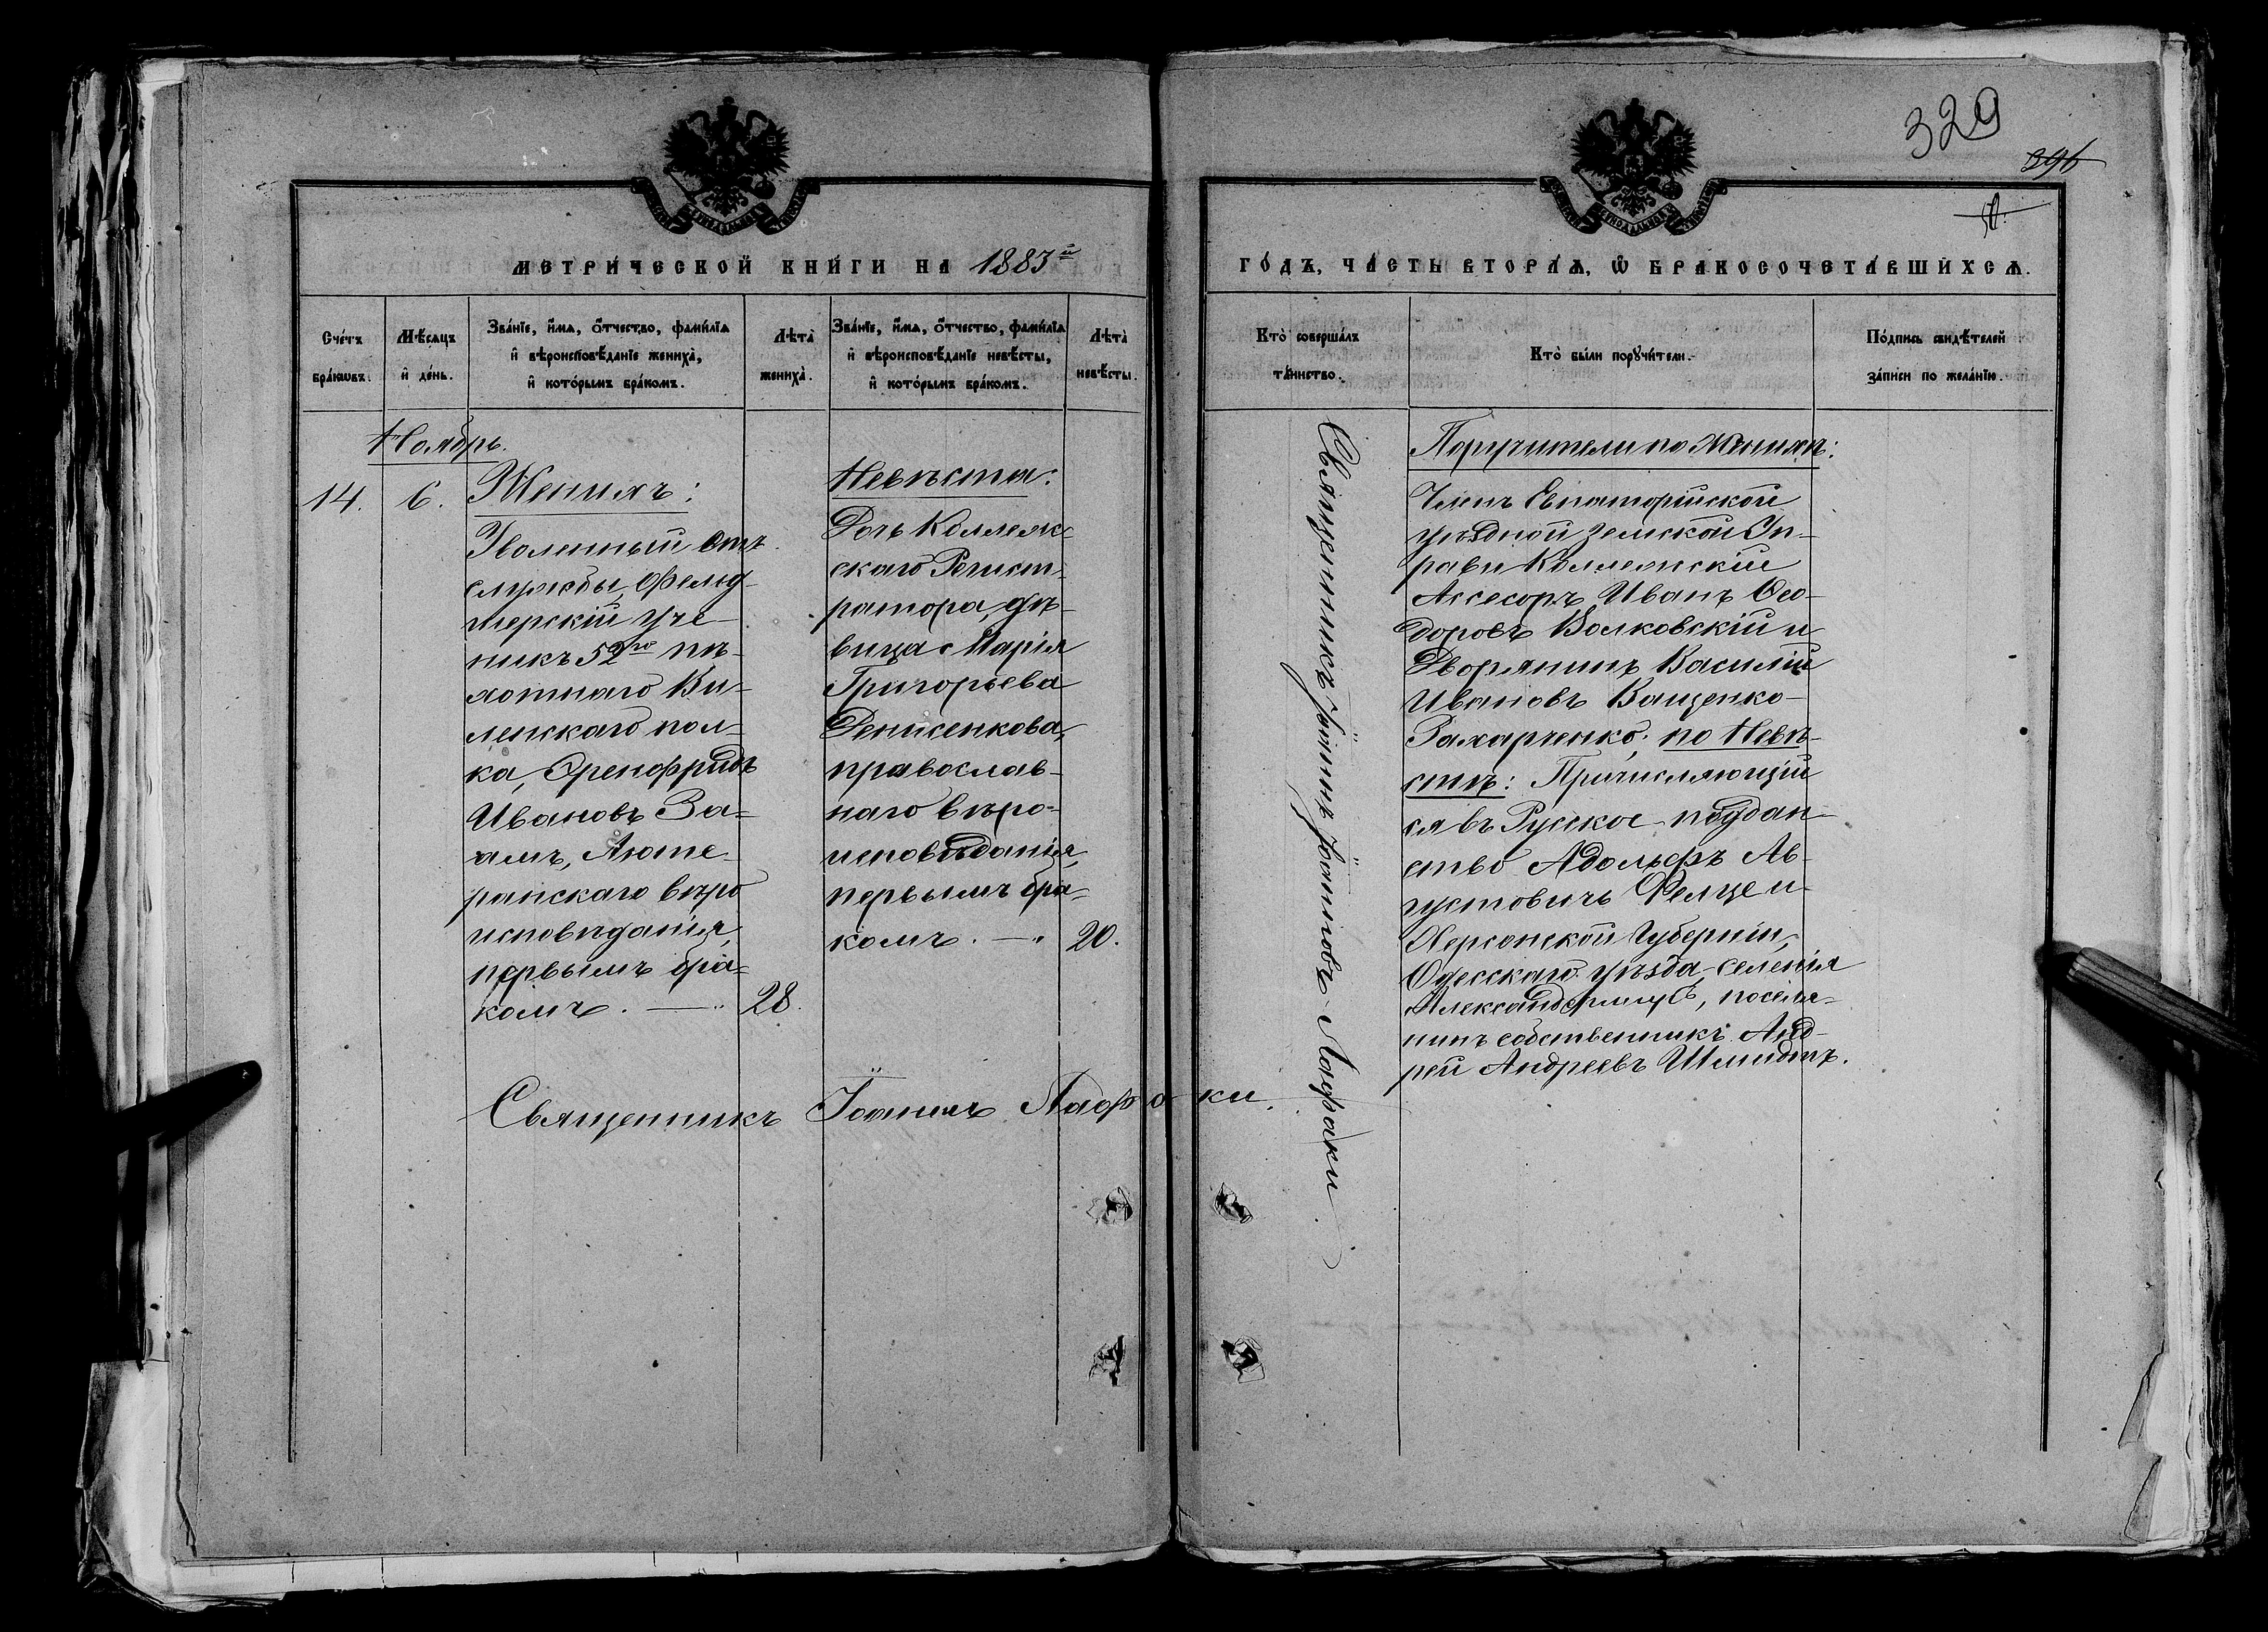 329
296
МЕТРИ́ЧЕСКОЙ КНИ́ГИ НА 1883й
ГО́ДЪ, ЧА́СТЬ ВТОРА́Ѧ, Ѿ БРАКОСОЧЕТА́ВШИХСѦ.
Сче́тъ
бра́кѡвъ.
Мѣ́сѧцъ
и҆ де́нь.
Зва́нїе, и҆́мѧ, ѻ҆́тчество, фами́лїѧ
и҆ вѣроисповѣ́данїе жениха̀,
и҆ кото́рымъ бра́комъ.
Лѣ́та̀
жениха̀.
Зва́нїе, и҆́мѧ, ѻ҆́тчество, фами́лїѧ
и҆ вѣроисповѣ́данїе невѣ́сты,
и҆ кото́рымъ бра́комъ.
Лѣ́та̀
невѣ́сты.
Кто̀ соверша́лъ
та́инство.
Кто̀ бы́ли порꙋчи́тели.
По́дпись свидѣ́телей
за́писи по жела́нїю.
Ноябрь.
14.
6.
Женихъ:
Уволенный отъ
службы, Фельд-
шерскій уче-
никъ 52го пѣ-
хотнаго Ви-
ленскаго пол-
ка, Эренфридъ
Ивановъ За-
амъ, Люте-
ранскаго вѣро
исповѣданія,
первымъ бра-
комъ. —
28.
Невѣста:
Дочь Коллеж-
скаго Регист-
ратора, дѣ-
вица Марія
Григорьева
Денисенкова,
православ-
наго вѣро-
исповѣданія,
первымъ бра-
комъ. —
20.
Священникъ Іоаннъ Лафаки.
Священникъ Іоаннъ Лафаки.
Поручители по Женихѣ:
Членъ Евпаторійской
уѣздной земской Уп-
равы Коллежскій
Ассесоръ Иванъ Ѳео-
доровъ Волковскій и
Дворянинъ Василій
Ивановъ Ващенко-
Захарченко; по Невѣ-
стѣ: Причисляющій
ся въ Русское поддан-
ство Адольфъ Ав-
густовичъ Фелце и
Херсонской Губерніи,
Одесскаго уѣзда, селенія
поселя-
нинъ собственникъ Анд-
рей Андреевъ Шмидтъ.